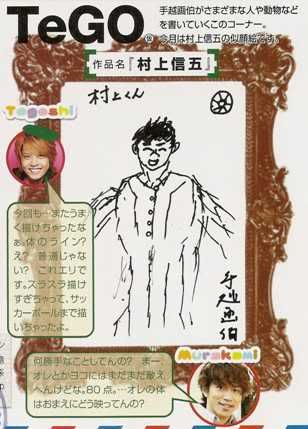 TeGO
手越画伯がさまざまな人や動物など
を書いていくこのコーナー。
今月は村上信五の似顔絵です。
作品名『村上信五』
村上くん
Tegoshi
今回も…またうま
く描けちゃったな
ぁ。体のライン?
え? 普通じゃな
い? これエリで
す。スラスラ描け
すぎちゃって、サッ
カーボールまで描
いちゃったよ。
手越画伯
Murakami
何勝手なことしてんの? まー、
オレとかヨコにはまだまだ敵え
へんけどな。80点。…オレの体
はおまえにどう映ってんの?